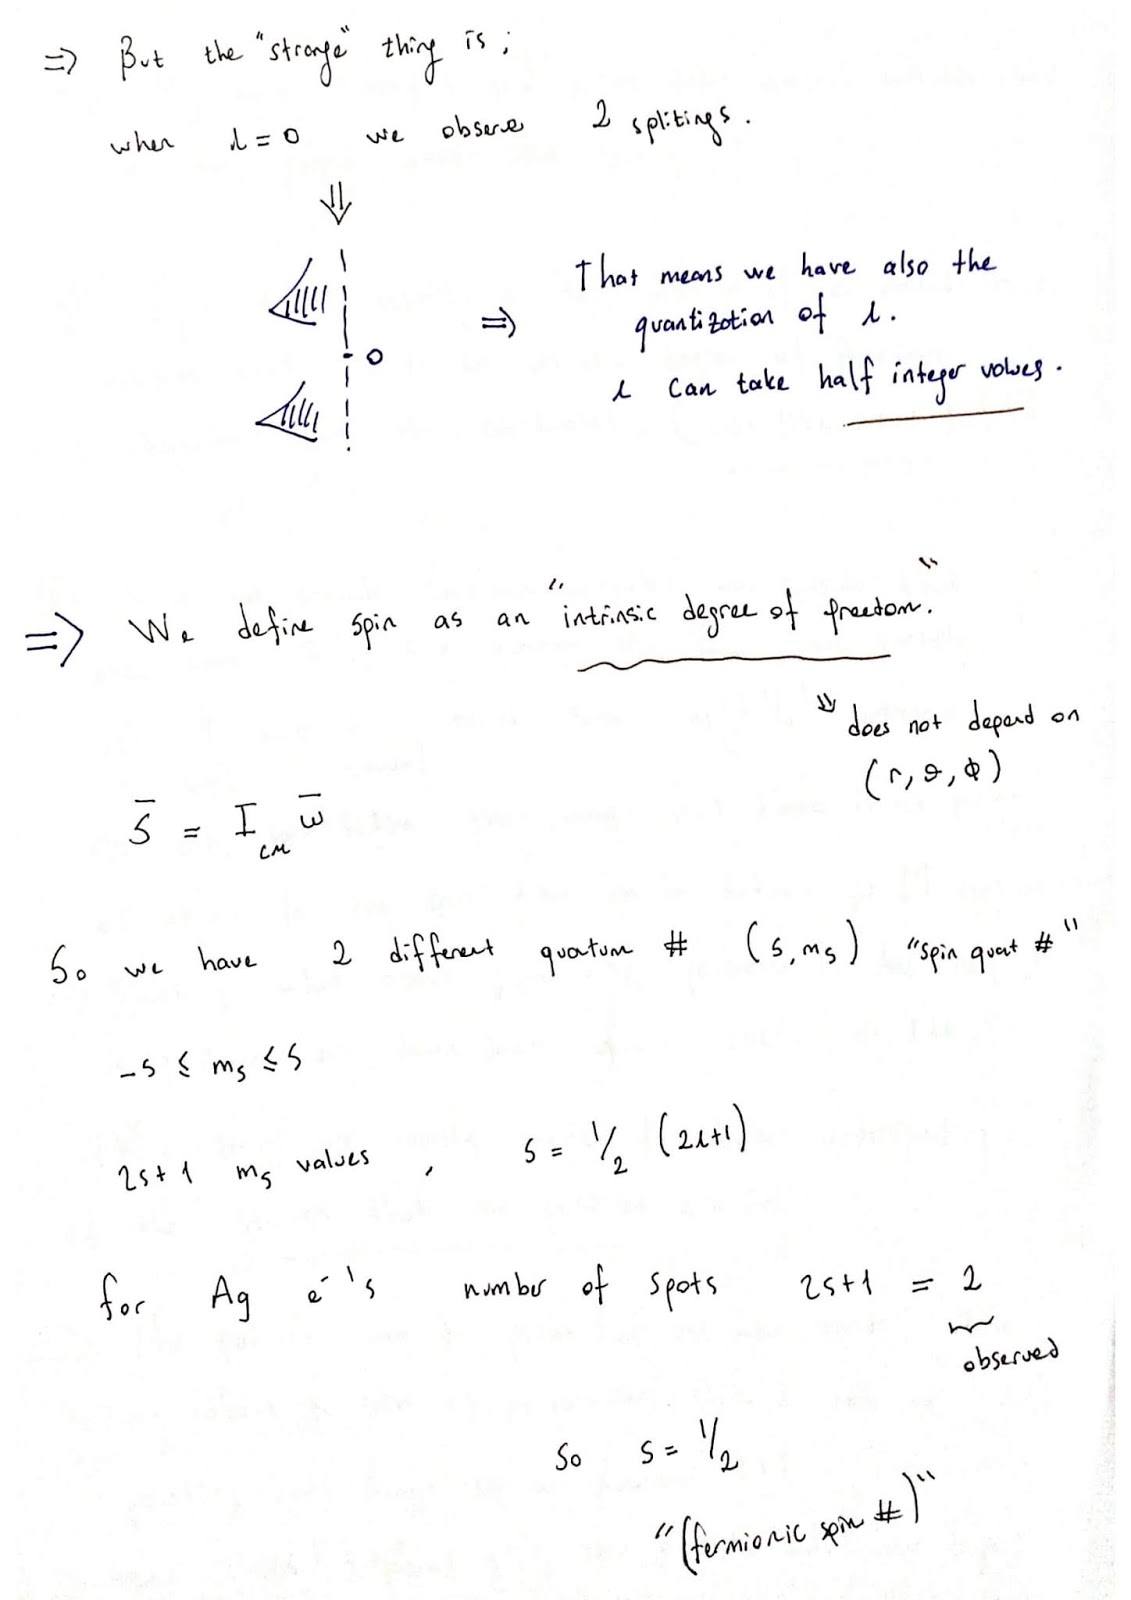 => But the "strange" thing is ;
when l = 0 we observe 2 splitings.
⇓
0
=> That means we have also the
quantization of l.
l can take half integer values.
=> We define spin as an "intrinsic degree of freedom."
⇓ does not depend on
(r, θ, ϕ)
S̄ = I_CM ω̄
So we have 2 different quantum # (s, m_s) "spin quant #"
-s ≤ m_s ≤ s
2s+1 m_s values , s = 1/2 (2l+1)
for Ag e⁻'s number of spots 2s+1 = 2
observed
So s = 1/2
"(fermionic spin #)"